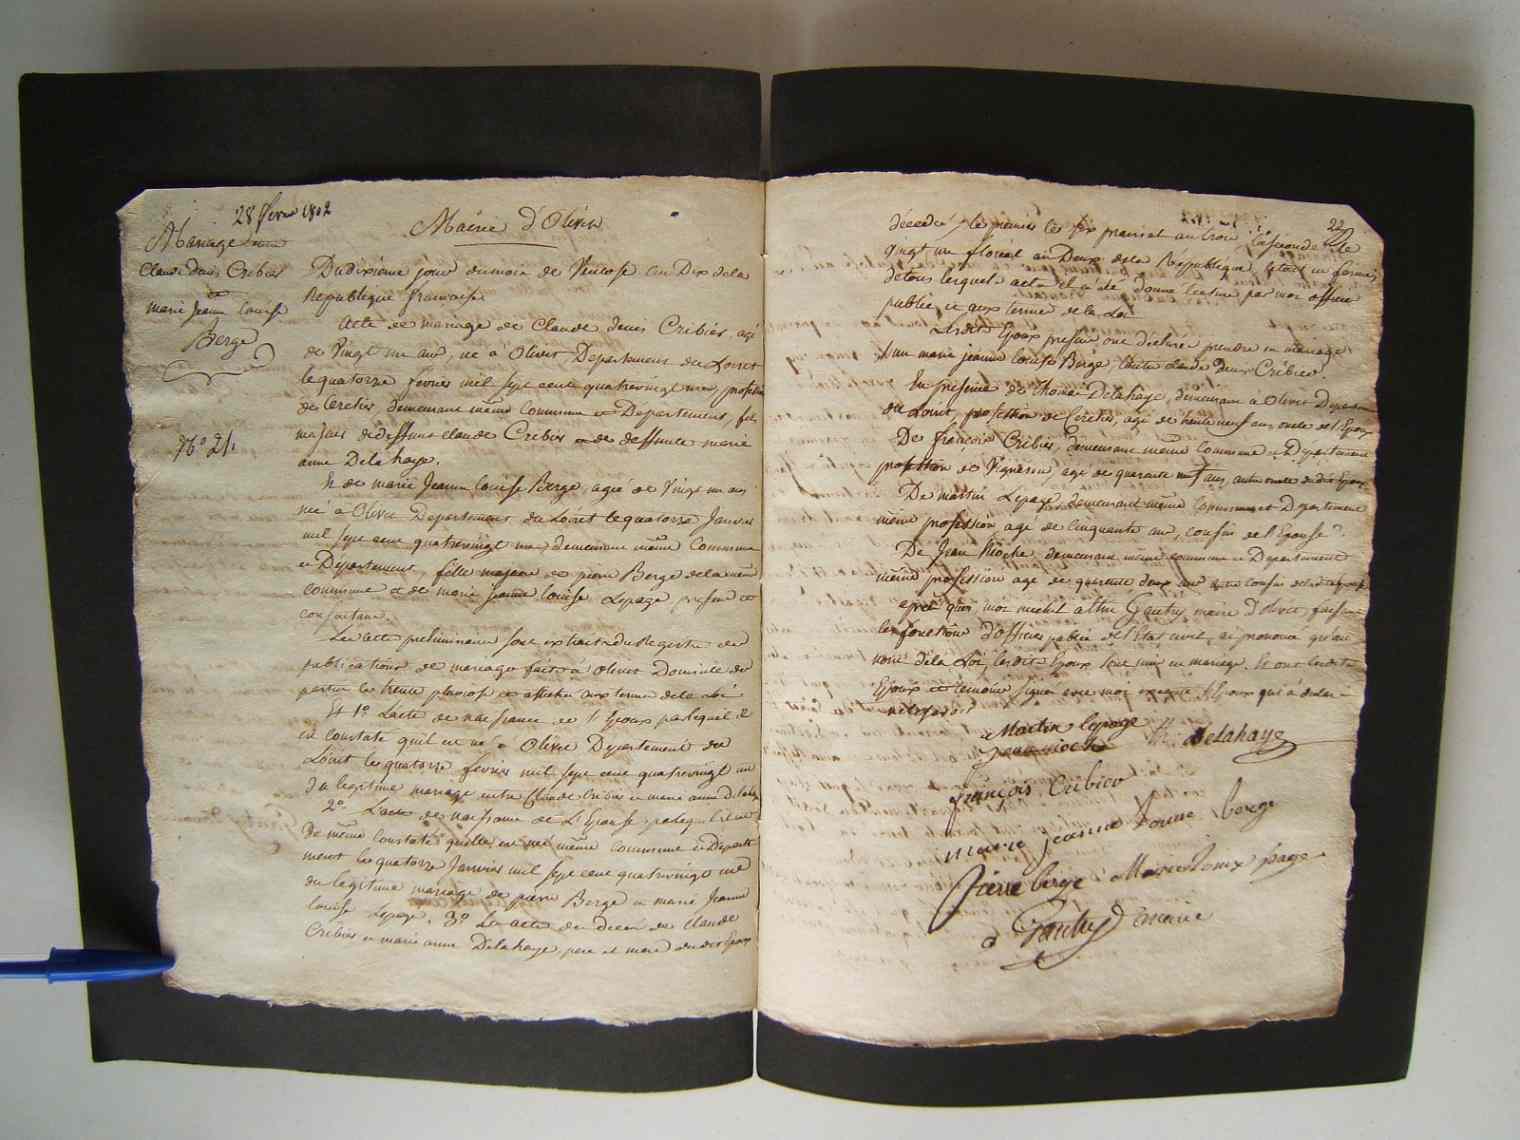 28 fevrier 1802
Mariage entre
Claude denis Cribier
et
marie Jeanne Louise
Berge
N.° 21.
Mairie d'Olivet
Du dixieme jour du mois de Ventose an Dix de la
Republique francaise
Acte de mariage de Claude denis Cribier, agé
de Vingt un ans, né à Olivet Departement du Loiret
le quatorze fevrier mil sept cent quatrevingt un, profession
de Cerclier, demeurant même Commune et Departement, fils
majeur de deffunt Claude Cribier et de deffunte marie
anne Delahaye.
Et de marie Jeanne Louise Berge, agée de Vingt un ans
née à Olivet Departement du Loiret le quatorze Janvier
mil sept cent quatrevingt un, demeurant même Commune
et Departement, fille majeure de pierre Berge de la même
commune et de marie Jeanne Louise Lepage present et
consentant.
Les actes preliminaires sont extrait du Registre des
publications de mariage faites à Olivet Domicile des
parties le trente pluviose et affichés aux termes de la Loi
Et 1° L'acte de naissance de l'Epoux par lequel il
est constaté qu'il est né à Olivet Departement du
Loiret le quatorze fevrier mil sept cent quatrevingt un
du legitime mariage entre Claude Cribier et marie anne Delahaye
2° L'acte de naissance de L'Epouse par lequel il est
De même constaté qu'elle est née même commune et Departe
ment le quatorze Janvier mil sept cent quatrevingt un
du legitime mariage de pierre Berge et marie Jeanne
Louise Lepage. 3° Les actes de decès de Claude
Cribier et marie anne Delahaye pere et mere du dit Epoux
22
décédés, le premier le six prairial an trois, la seconde le
vingt un floréal an Deux de la Republique, le tout en forme
de tous lesquels actes il a été donné lecture par moi officier
public, et aux termes de la Loi
Lesdits Epoux present ont déclaré prendre en mariage
L'un marie jeanne Louise Berge, l'autre Claude denis Cribier.
En presence de Thomas Delahaye, demeurant à Olivet Departement
du Loiret, profession de Cerclier, agé de trente neuf ans oncle de l'Epoux
De françois Cribier, demeurant même Commune et Departement
profession de Vigneron, agé de quarante neuf ans, autre oncle du dit Epoux
De martin Lepage demeurant même Commune et Departement
même profession agé de Cinquante ans, cousin de l'Epouse.
De Jean Rioche, demeurant même commune et Departement
même profession agé de quarante deux ans cousin de ladite Epouse
après quoi, moi michel Gautry maire d'olivet, faisant
les fonctions d'officier public de l'Etat civil, ai prononcé qu'au
nom de la Loi, lesdits Epoux sont unis en mariage. Et ont lesdits
Epoux et temoins signés avec moi excepté l'Epoux qui a declaré
ne le savoir
Martin lepage
Jean rioche
th. delahaye
françois Cribier
marie jeanne Louise berge
Pierre berge Marie Louise page
Gautry maire